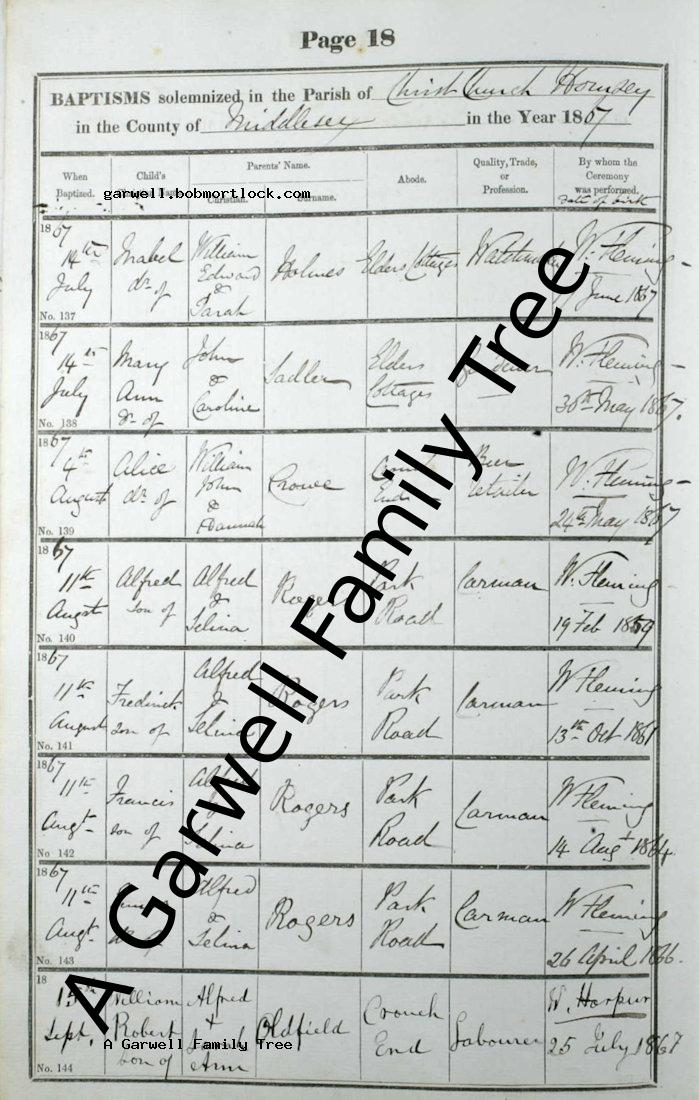 Page 18
BAPTISMS solemnized in the Parish of Christ Church Hornsey
in the County of Middlesex in the Year 1867
When Baptized.
Child's
Parents' Name.
Christian.
Surname.
Abode.
Quality, Trade, or Profession.
By whom the Ceremony was performed.
Date of birth
garwell.bobmortlock.com
1867
14th July
No. 137
Mabel dr. of
William Edward & Sarah
Holmes
Elders Cottages
W. Fleming
17 June 1867
1867
14th July
No. 138
Mary Ann dr. of
John & Caroline
Sadler
Elders Cottages
W. Fleming
30th May 1867.
1867
4th August
No. 139
Alice dr. of
William John & Hannah
Crowe
End
Beer retailer
W. Fleming
24th May 1867
1867
11th Augst
No. 140
Alfred son of
Alfred & Selina
Rogers
Park Road
Carman
W. Fleming
19 Feb 1859
1867
11th August
No. 141
Frederick son of
Alfred & Selina
Rogers
Park Road
Carman
W Fleming
13th Oct 1861
1867
11th Augt
No 142
Francis son of
Alfred & Selina
Rogers
Park Road
Carman
W Fleming
14 Augt 1864.
1867
11th Augt.
No. 143
Alfred & Selina
Rogers
Park Road
Carman
W Fleming
26 April 1866.
18
15th Sept.
No. 144
William Robert son of
Alfred + Ann
Oldfield
Crouch End
Labourer
W. Harpur
25 July 1867
A Garwell Family Tree
A Garwell Family Tree